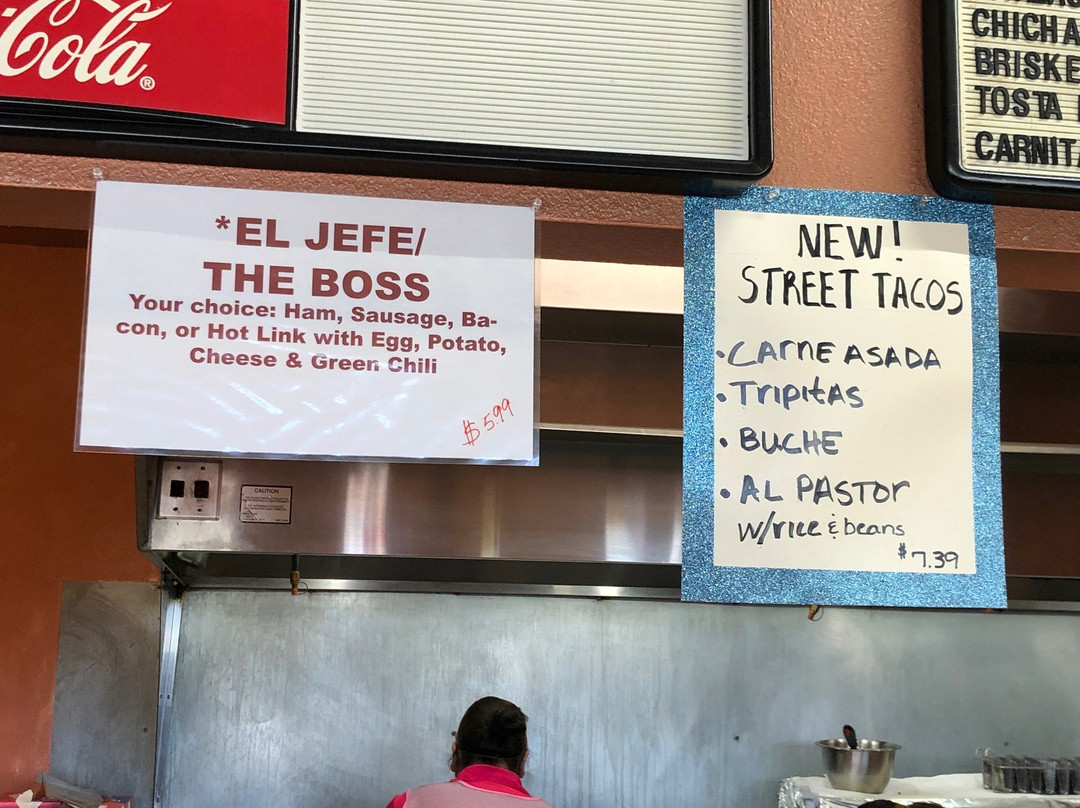 Cola®
CHICHA
BRISKE
TOSTA
CARNITA
*EL JEFE/
THE BOSS
Your choice: Ham, Sausage, Ba-
con, or Hot Link with Egg, Potato,
Cheese & Green Chili
$5.99
NEW!
STREET TACOS
•CARNE ASADA
•TripitAs
•BUCHE
•AL PASTOr
W/rice & beans
$7.39
CAUTION